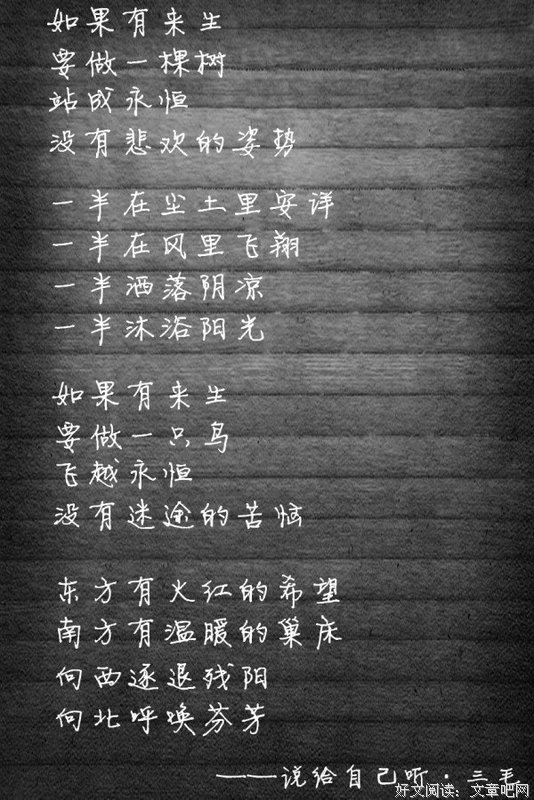 如果有来生
要做一棵树
站成永恒
没有悲欢的姿势
一半在尘土里安详
一半在风里飞翔
一半洒落阴凉
一半沐浴阳光
如果有来生
要做一只鸟
飞越永恒
没有迷途的苦恼
东方有火红的希望
南方有温暖的巢床
向西逐退残阳
向北呼唤芬芳
——说给自己听·三毛
好文阅读：文章吧网